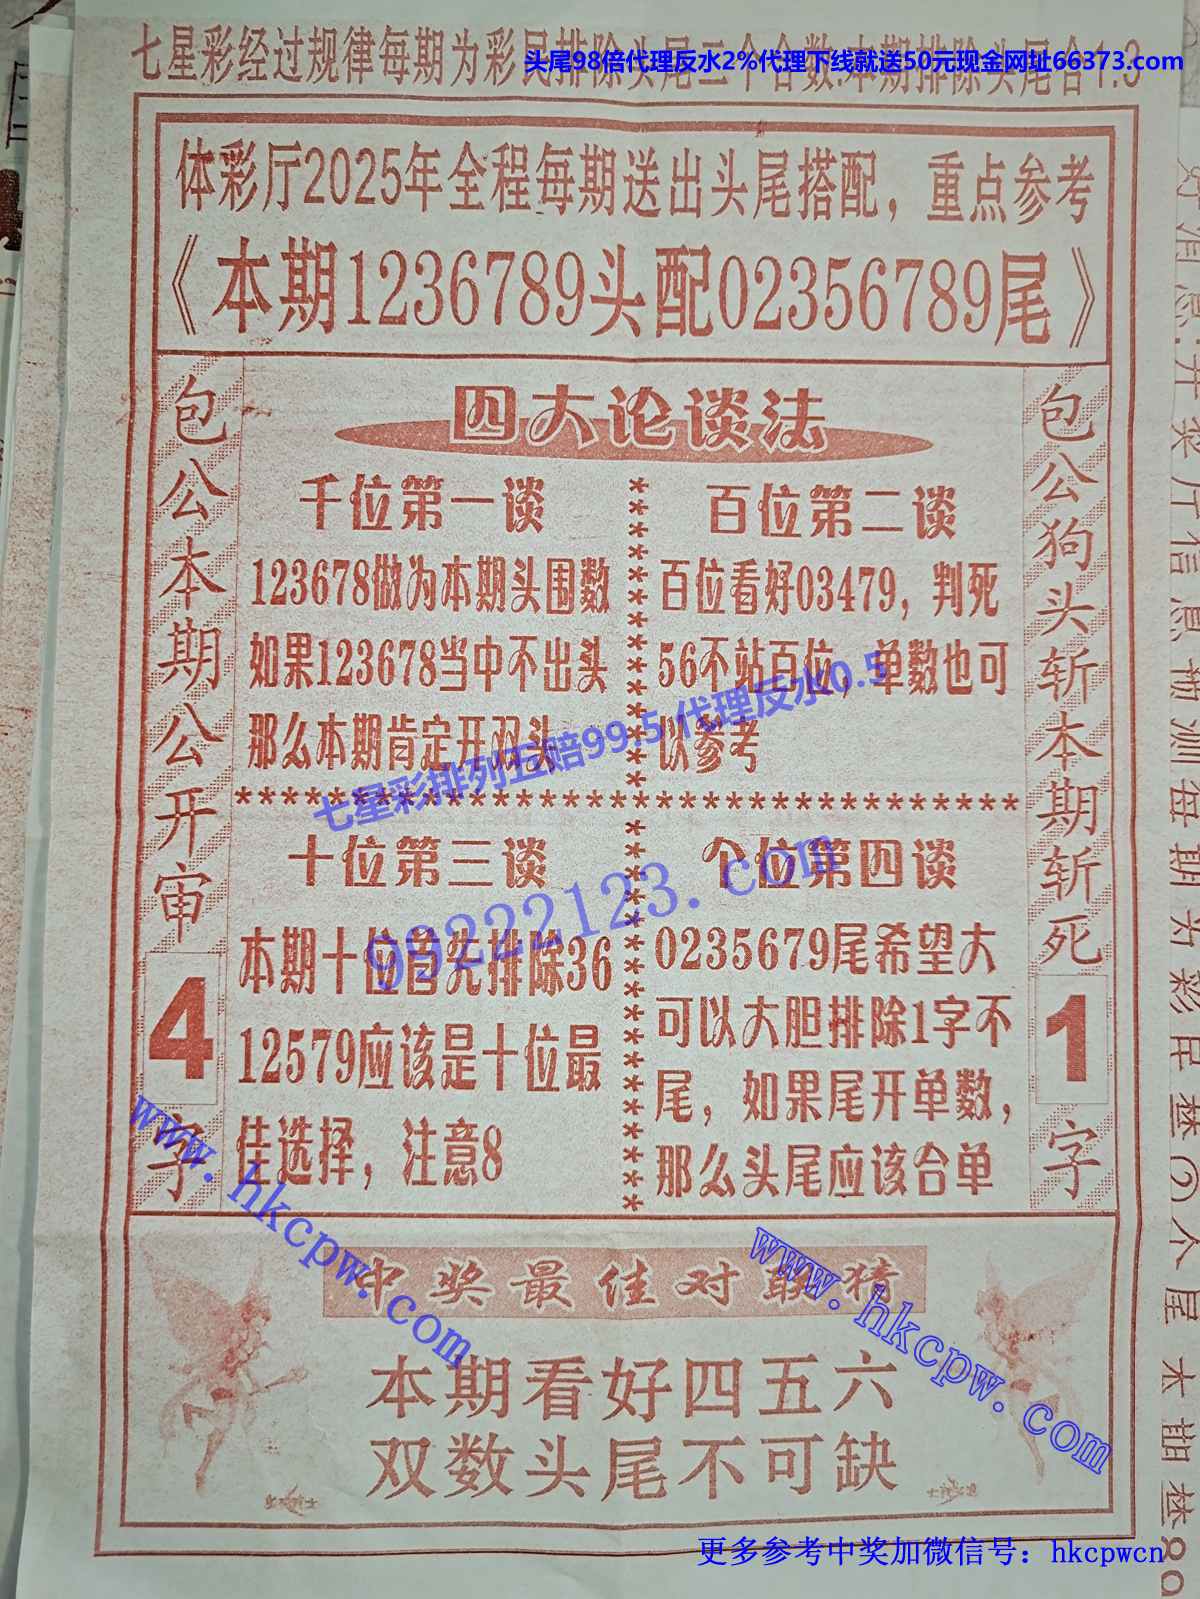 头尾98倍代理反水2%代理下线就送50元现金网址66373.com
七星彩经过规律每期为彩民排除头尾二个合数.本期排除头尾合1.3
体彩厅2025年全程每期送出头尾搭配，重点参考
《本期1236789头配02356789尾》
包公本期公开审
4
字
四大论谈法
千位第一谈
123678做为本期头围数
如果123678当中不出头
那么本期肯定开双头
百位第二谈
百位看好03479，判死
56不站百位，单数也可
以参考
七星彩排列五赔99.5代理反水0.5
********************************
十位第三谈
本期十位首先排除36
12579应该是十位最
佳选择，注意8
99222123.com
个位第四谈
0235679尾希望大
可以大胆排除1字不
尾，如果尾开单数，
那么头尾应该合单
包公狗头斩本期斩死
1
字
www.hkcpw.com
www.hkcpw.com
中奖最佳对联猜
本期看好四五六
双数头尾不可缺
更多参考中奖加微信号：hkcpwcn